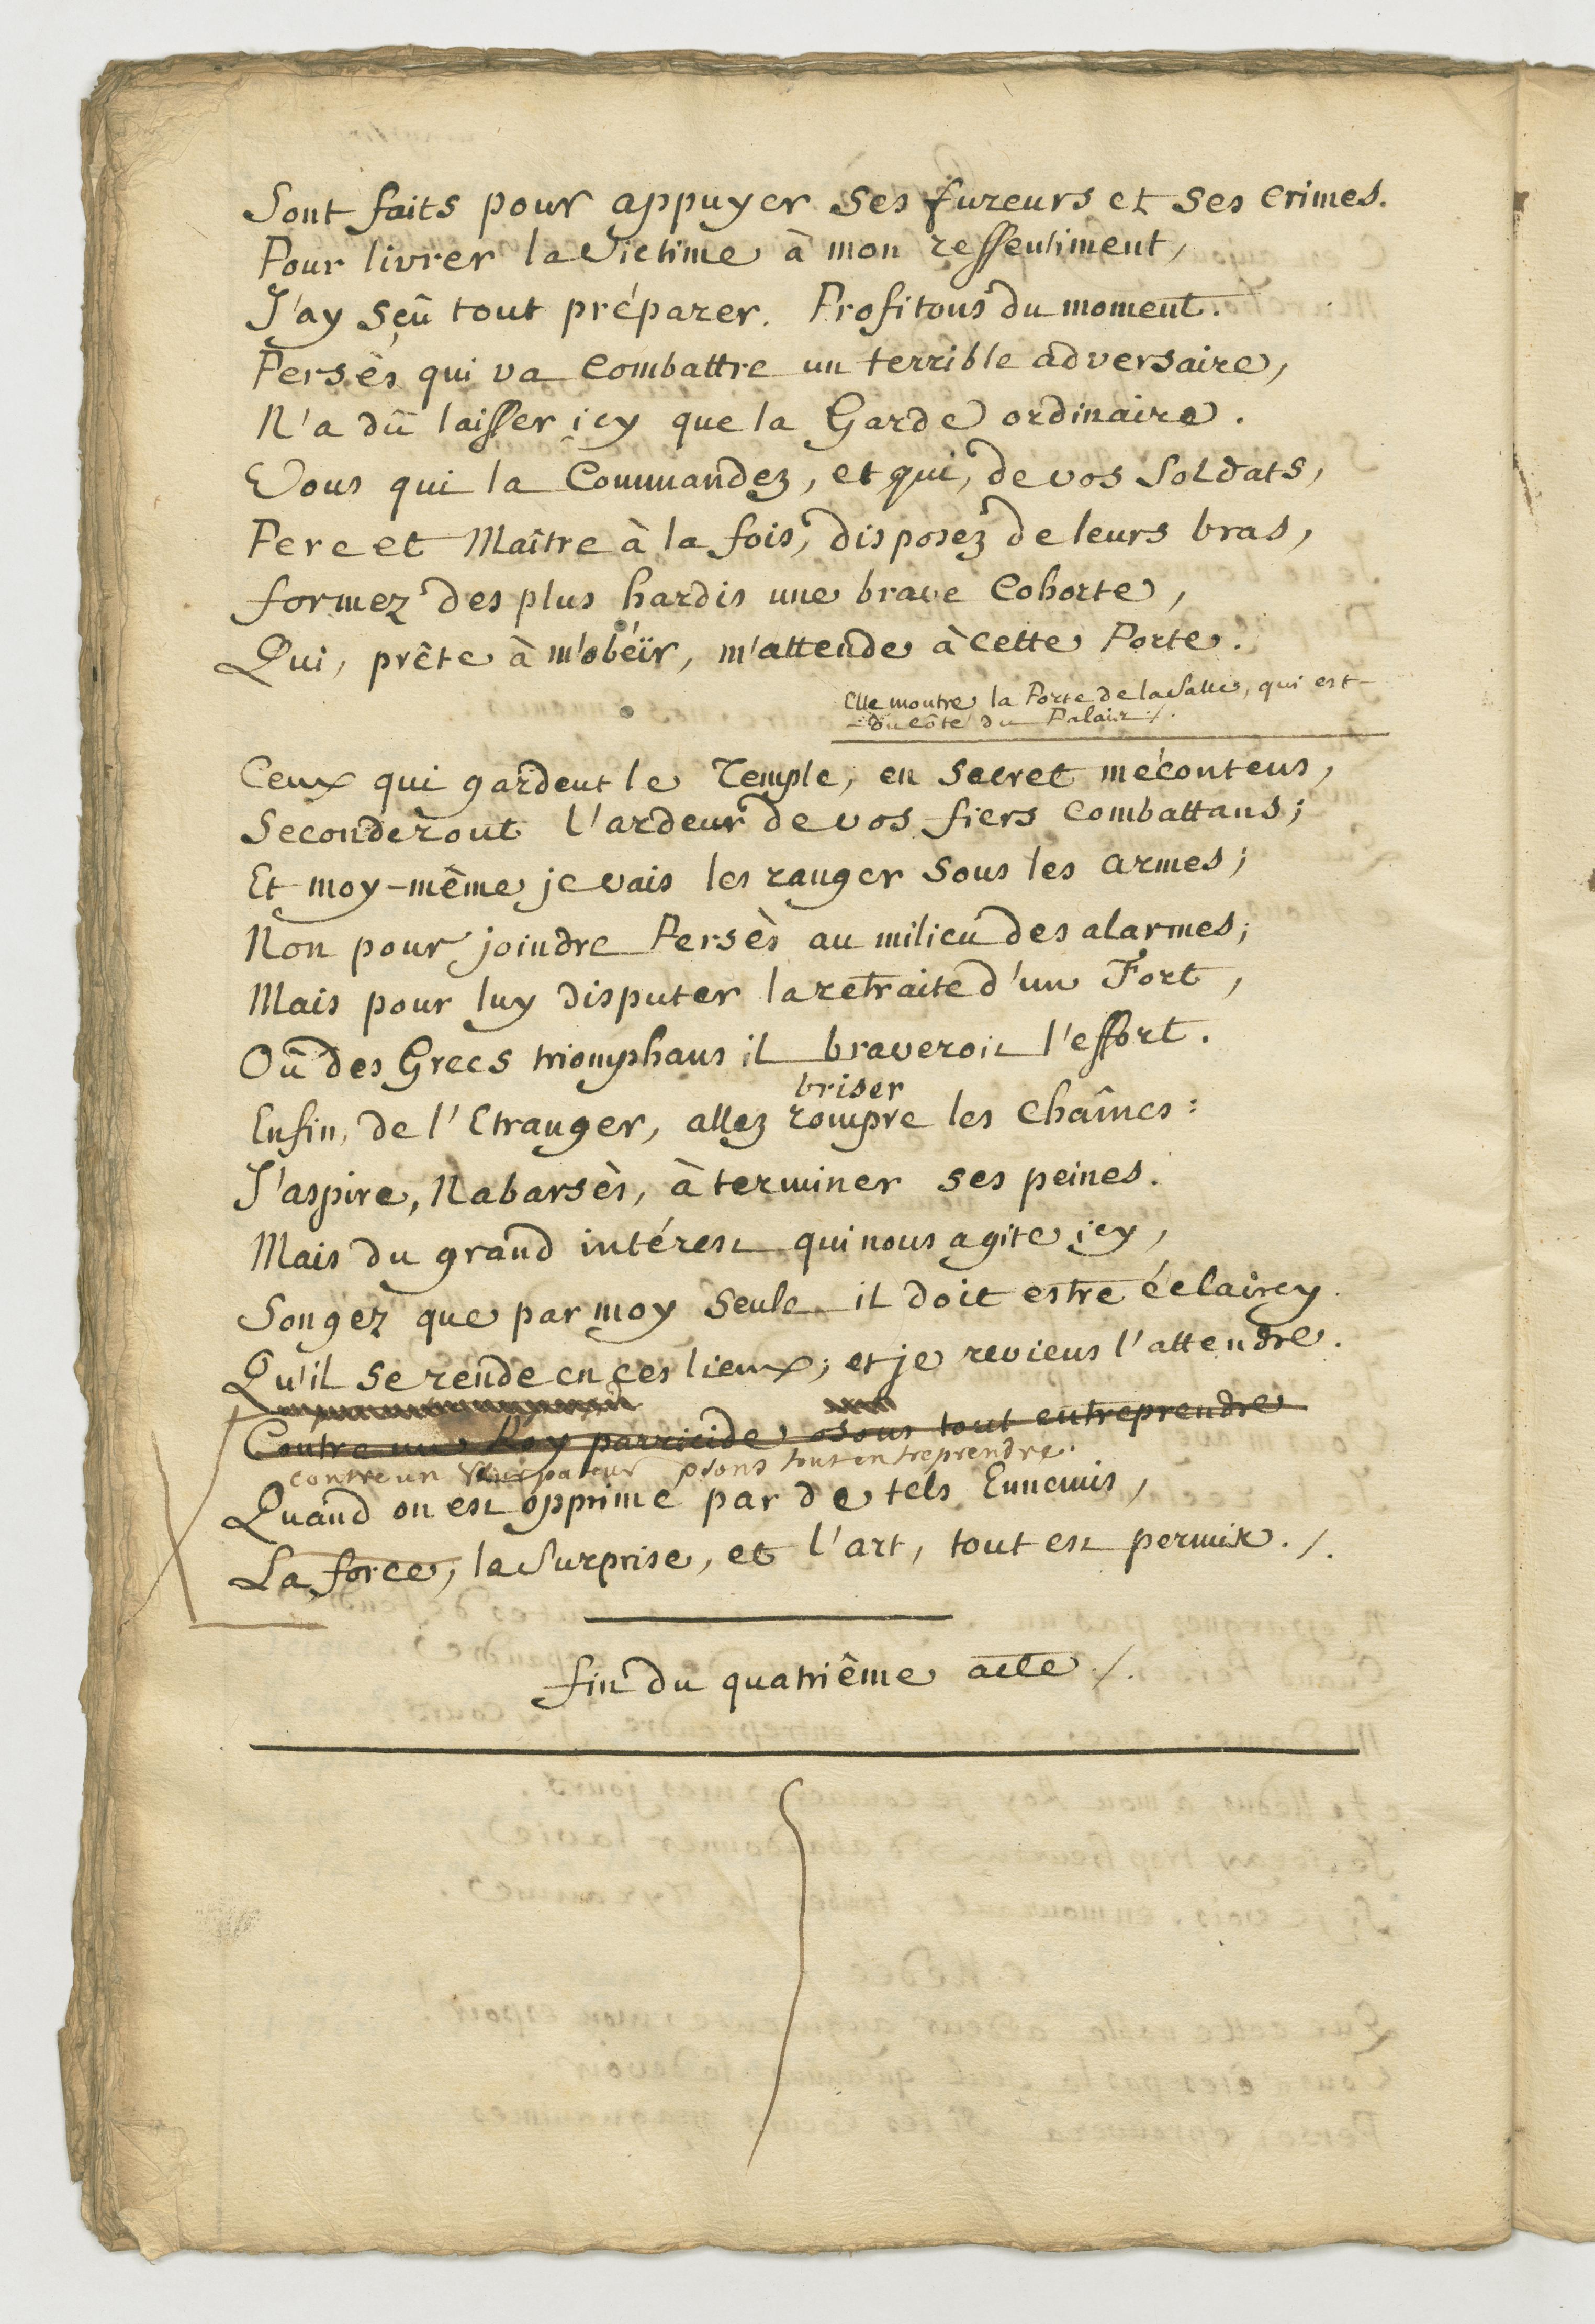 Sont faits pour appuyer ses fureurs et ses crimes.
Pour livrer la Victime à mon ressentiment,
J'ay sçû tout préparer. Profitons du moment.
Persès qui va combattre un terrible adversaire,
N'a dû laisser icy que la Garde ordinaire.
Vous qui la Commandez, et qui, de vos Soldats,
Pere et Maître à la fois, disposez de leurs bras,
formez des plus hardis une brave Cohorte,
Qui, prête à m'obéïr, m'attende à cette Porte.
Elle montre la Porte de la Salle, qui est
du côté du Palais ./.
Ceux qui gardent le Temple, en secret mécontens,
Seconderont l'ardeur de vos fiers combattans;
Et moy-même je vais les ranger sous les armes;
Non pour joindre Persès au milieu des alarmes;
Mais pour luy disputer la retraite d'un Fort,
Où des Grecs triomphans il braveroit l'effort.
briser
Enfin, de l'Etranger, allez rompre les chaînes:
J'aspire, Nabarsès, à terminer ses peines.
Mais du grand intérest qui nous agite icy,
Songez que par moy seule il doit estre éclaircy.
Qu'il se rende en ces lieux; et je reviens l'attendre.
Contre un Roy parricide osons tout entreprendre
contre un Usurpateur osons tout entreprendre.
Quand on est opprimé par de tels Ennemis,
La force, la Surprise, et l'art, tout est permis. ./.
fin du quatrième acte ./.